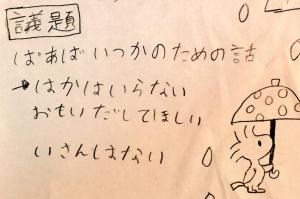 議題
ばあばいつかのための話
→はかはいらない
おもいだしてほしい
いさんはない